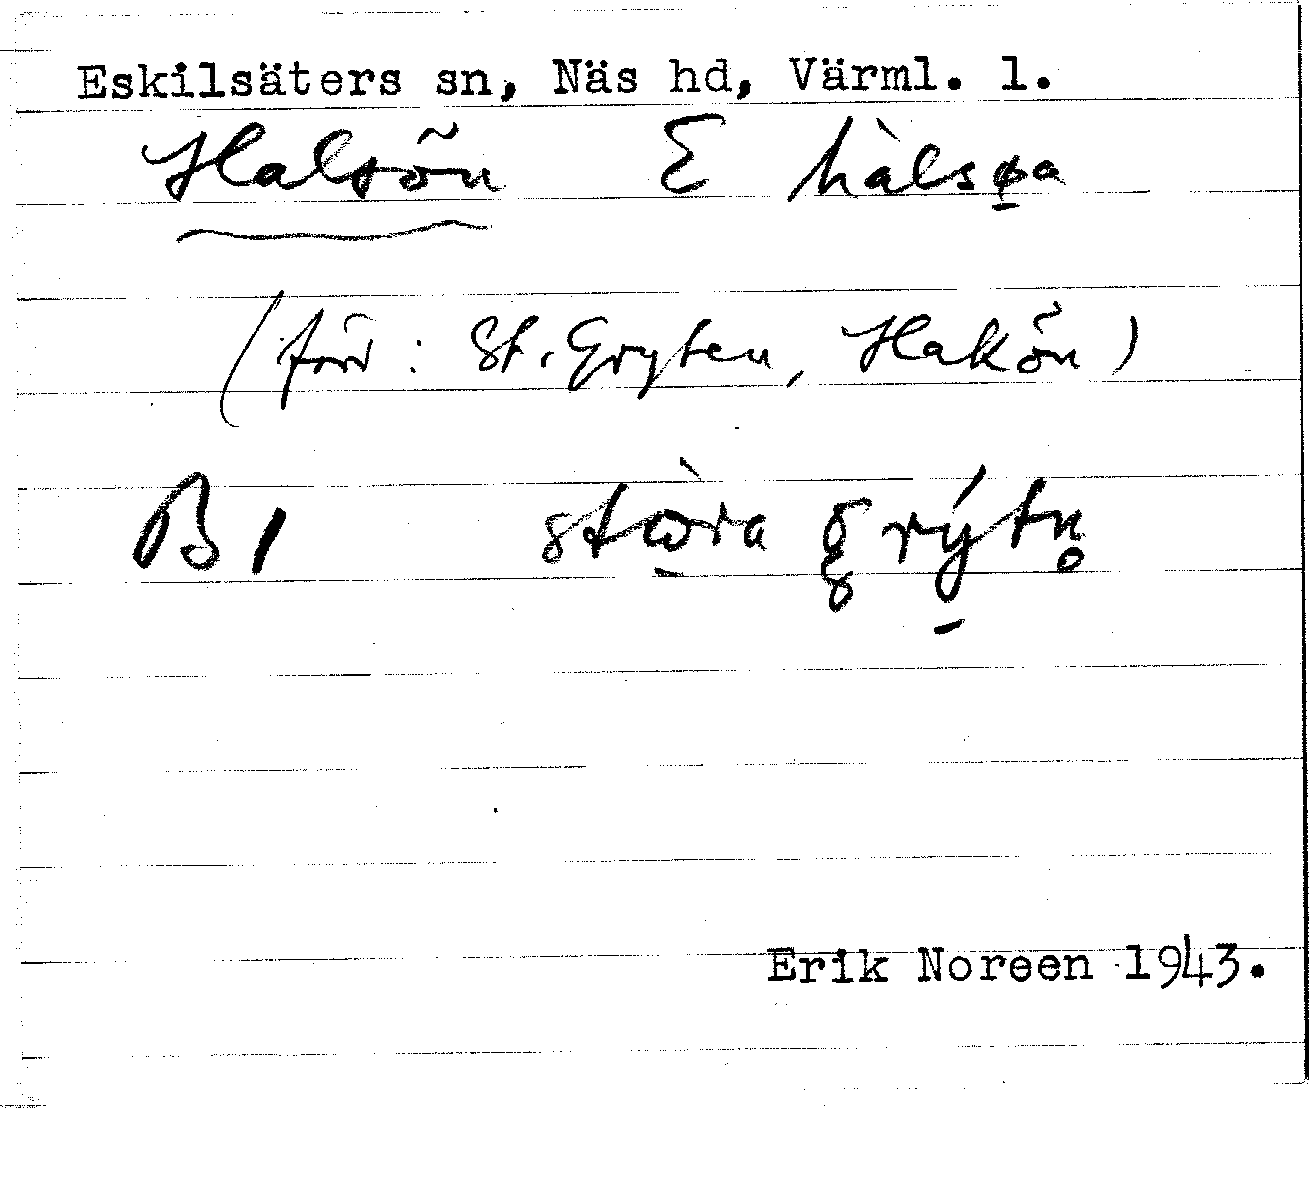 Eskilsäters sn, Näs hd, Värml. l.
Halsön E hàlsøa
(förr: St. Gryten, Hakön)
B 1 stɷ̀ra grýtn̥
Erik Noreen 1943.